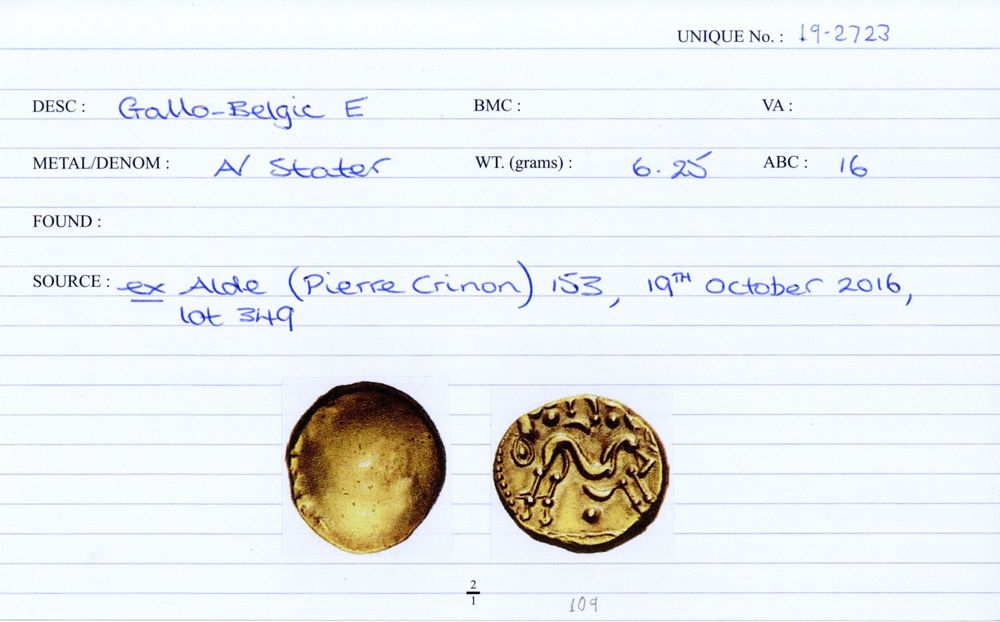 UNIQUE No. : 19-2723
DESC : Gallo-Belgic E BMC : VA :
METAL/DENOM : A/ Stater WT. (grams) : 6.25 ABC : 16
FOUND :
SOURCE : ex Alde (Pierre Crinon) 153, 19TH October 2016,
lot 349
2
1
109